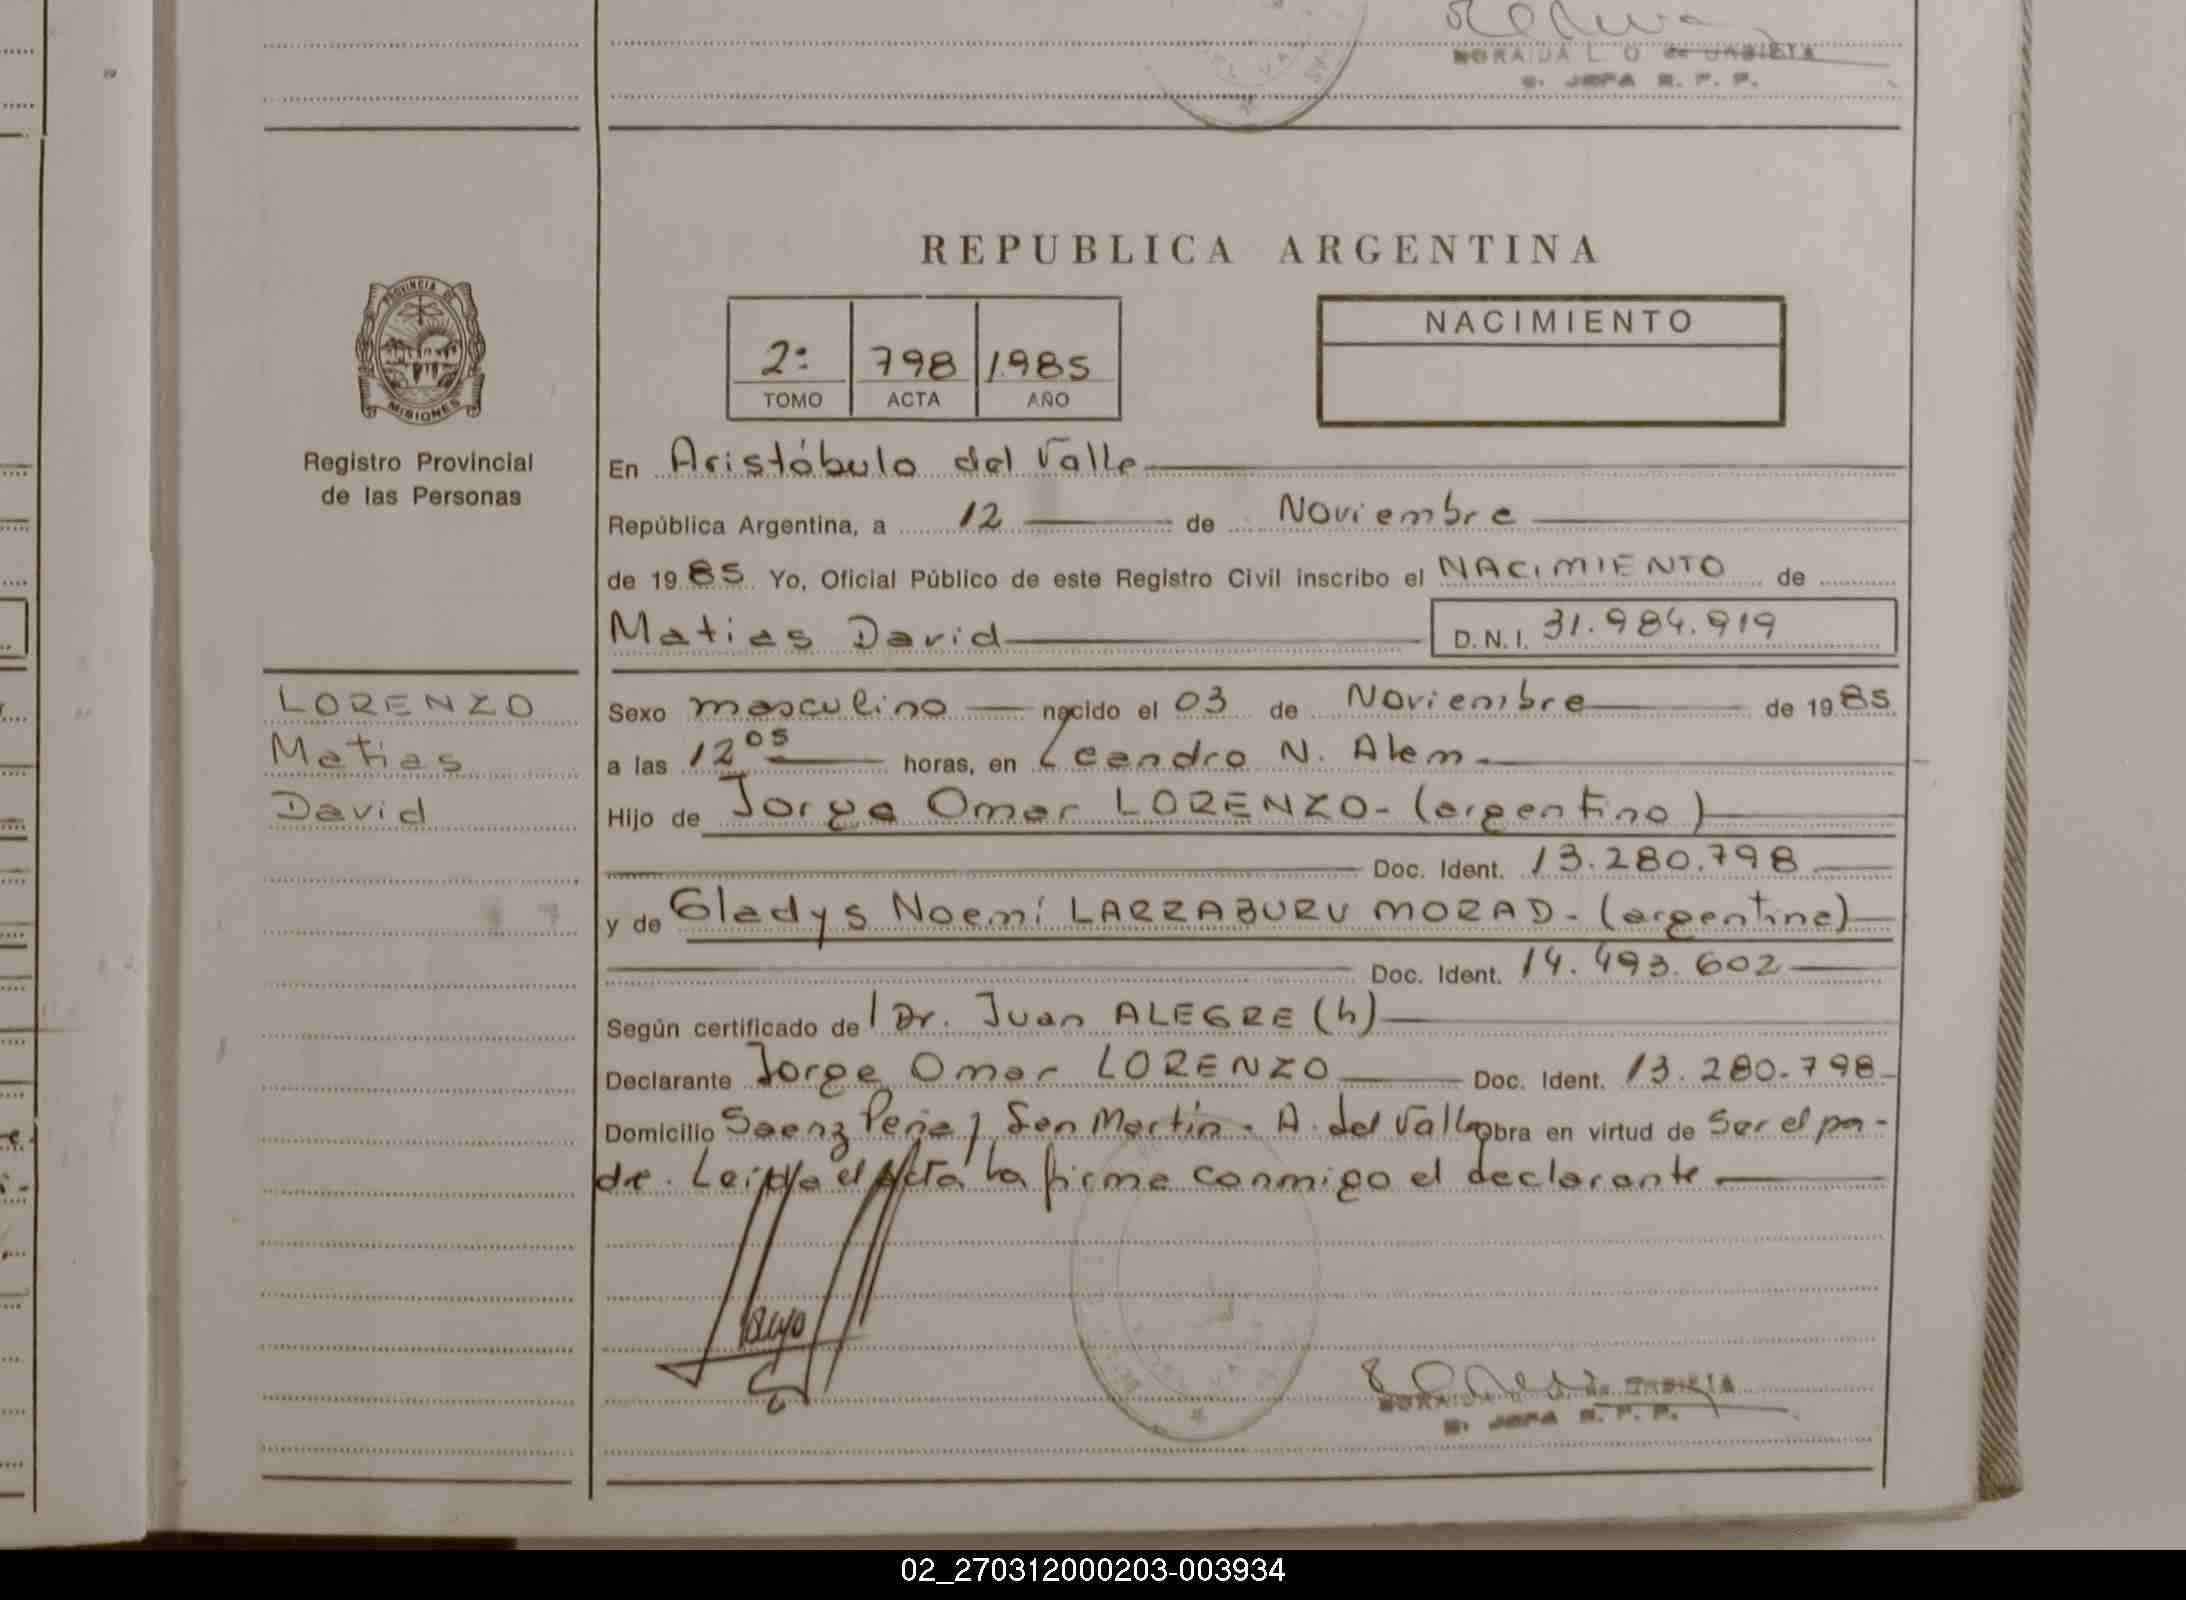 NORAIDA L. O. de URBIETA
S. JEFA R. P. P.
REPUBLICA ARGENTINA
PROVINCIA DE
MISIONES
Registro Provincial
de las Personas
2º 798 1.985
TOMO ACTA AÑO
NACIMIENTO
En Aristóbulo del Valle
República Argentina, a 12 de Noviembre
de 19 85 Yo, Oficial Público de este Registro Civil inscribo el NACIMIENTO de
Matias David D.N.I. 31.984.919
LORENZO
Matias
David
Sexo masculino nacido el 03 de Noviembre de 19 85
a las 12 05 horas, en Leandro N. Alem
Hijo de Jorge Omar LORENZO - (argentino)
Doc. Ident. 13.280.798
y de Gladys Noemí LARRABURU MORAD - (argentina)
Doc. Ident. 14.493.602
Según certificado de Dr. Juan ALEGRE (h)
Declarante Jorge Omar LORENZO Doc. Ident. 13.280.798
Domicilio Saenz Peña y San Martín - A. del Valle obra en virtud de Ser el pa-
dre. Leida el Acta la firma conmigo el declarante
NORAIDA L. O. de URBIETA
S. JEFA R. P. P.
02_270312000203-003934